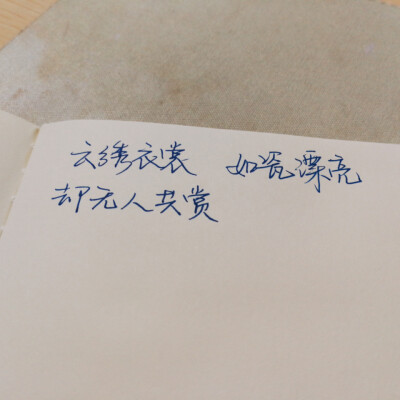 云绣衣裳 如瓷漂亮
却无人共赏